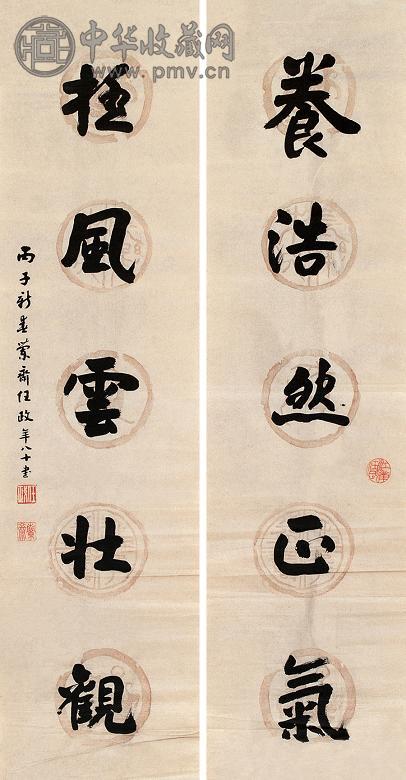 中华收藏网
www.pmv.cn
養浩然正氣
極風雲壯觀
丙子新春蘭齋任政年八十書